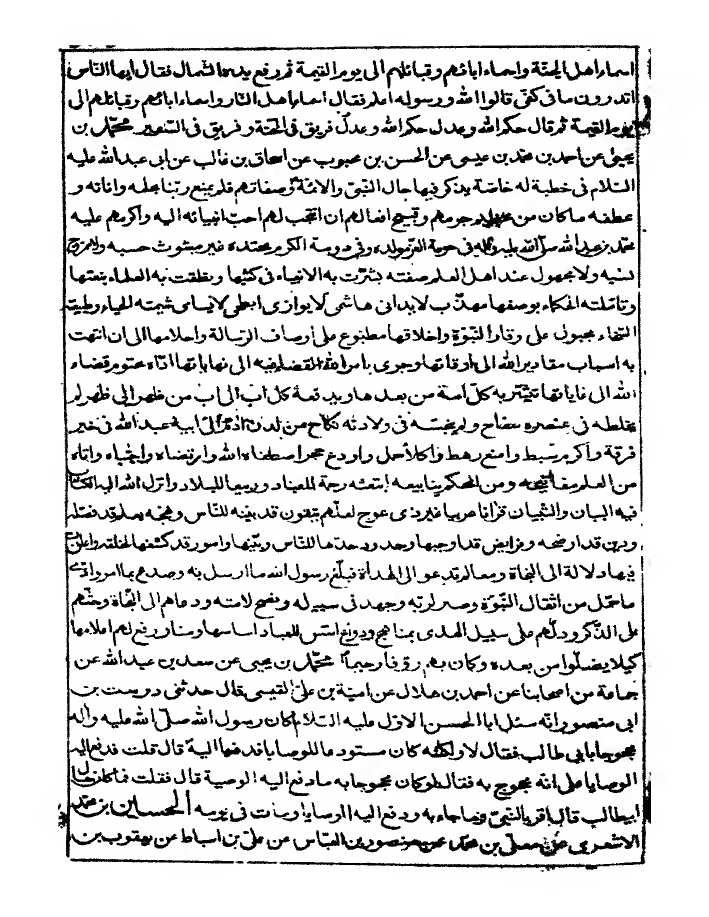 اسماء اهل الجنة واسماء ابائهم وقبائلهم الى يوم القيمة ثم رفع يده الشمال فقال ايها الناس
اتدرون ما فى كفى قالوا الله ورسوله اعلم فقال اسماء اهل النار واسماء ابائهم وقبائلهم الى
يوم القيمة ثم قال حكم الله وعدل حكم الله وعدل فريق فى الجنة وفريق فى السعير محمد بن
يحيى عن احمد بن محمد بن عيسى عن الحسن بن محبوب عن اسحاق بن غالب عن ابى عبد الله عليه
السلام فى خطبة له خاصة يذكر فيها حال النبى والائمة وصفاتهم فلم يمنع ربنا لحلمه واناته و
عطفه ما كان من جرمهم وقبيح افعالهم ان انتجب لهم احب انبيائه اليه واكرمهم عليه
محمد بن عبد الله صلى الله عليه واله فى حومة العز مولده وفى دومة الكرم محتده غير مشوب حسبه ولا ممزوج
نسبه ولا مجهول عند اهل العلم صفته بشرت به الانبياء فى كتبها ونطقت به العلماء بنعتها
وتاملته الحكماء بوصفها مهذب لا يدانى هاشمى لا يوازى ابطحى لا يسامى شيمته الحياء وطبيعته
السخاء مجبول على وقار النبوة واخلاقها مطبوع على اوصاف الرسالة واحلامها الى ان انتهت
به اسباب مقادير الله الى اوقاتها وجرى بامر الله القضاء فيه الى نهاياتها اداه محتوم قضاء
الله الى غاياتها تبشر به كل امة من بعدها ويدفعه كل اب الى اب من ظهر الى ظهر لم
يخلطه فى عنصره سفاح ولم ينجسه فى ولادته نكاح من لدن ادم الى ابيه عبد الله فى خير
فرقة واكرم سبط وامنع رهط واكلأ حمل واودع حجر اصطفاه الله وارتضاه واجتباه واتاه
من العلم مفاتيحه ومن الحكم ينابيعه ابتعثه رحمة للعباد وربيعا للبلاد وانزل الله اليه الكتاب
فيه البيان والتبيان قرانا عربيا غير ذى عوج لعلهم يتقون قد بينه للناس ونهجه بعلم قد فصله
ودين قد اوضحه وفرائض قد اوجبها وحدود حدها للناس وبينها وامور قد كشفها لخلقه واعلنها
فيها دلالة الى النجاة ومعالم تدعو الى هداه فبلغ رسول الله ما ارسل به وصدع بما امر وادى
ما حمل من اثقال النبوة وصبر لربه وجهد فى سبيله ونصح لامته ودعاهم الى النجاة وحثهم
على الذكر ودلهم على سبيل الهدى بمناهج ودواع اسس للعباد اساسها ومنار رفع لهم اعلامها
كيلا يضلوا من بعده وكان بهم رؤفا رحيما محمد بن يحيى عن سعد بن عبد الله عن
جماعة من اصحابنا عن احمد بن هلال عن امية بن على القيسى قال حدثنى درست بن
ابى منصور انه سئل ابا الحسن الاول عليه السلام اكان رسول الله صلى الله عليه واله
محجوجا بابى طالب فقال لا ولكنه كان مستودعا للوصايا فدفعها اليه قال قلت فدفع اليه
الوصايا على انه محجوج به فقال لو كان محجوجا به ما دفع اليه الوصية قال فقلت فما كان حال
ابيطالب قال اقر بالنبى وبما جاء به ودفع اليه الوصايا ومات فى يومه الحسين بن محمد
الاشعرى عن معلى بن محمد عن منصور بن العباس عن على بن اسباط عن يعقوب بن